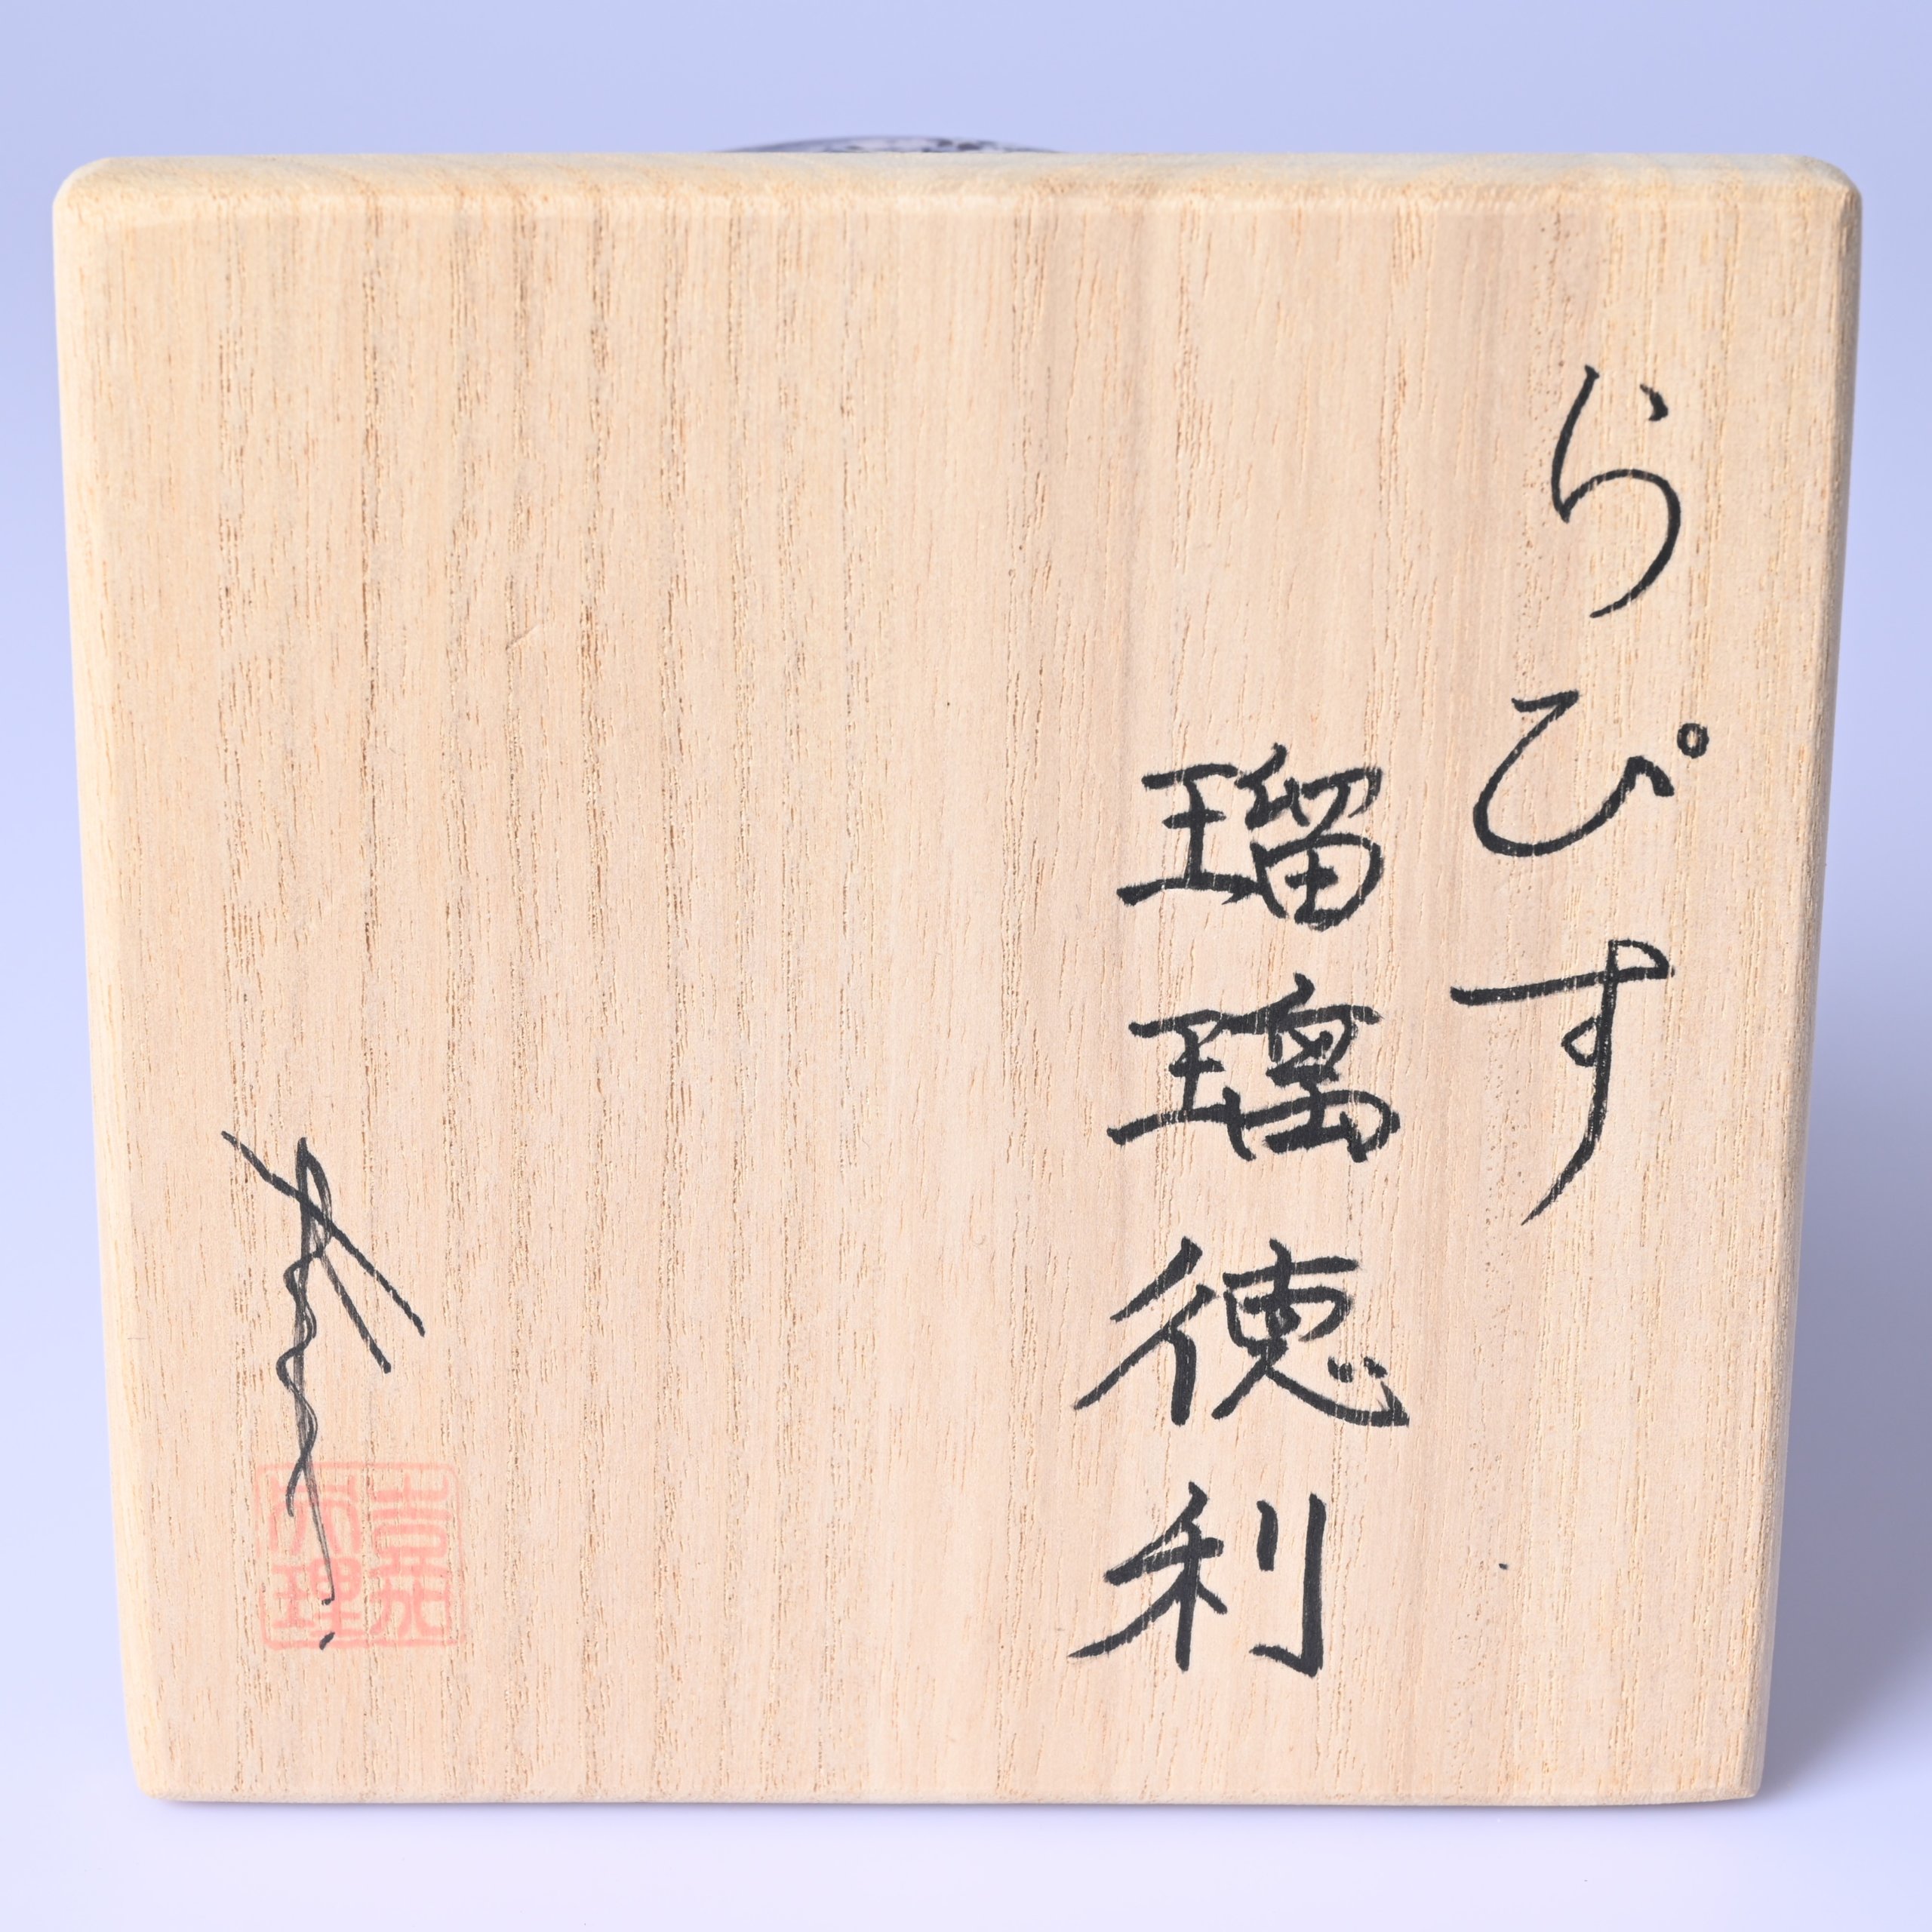 らぴす
瑠璃徳利